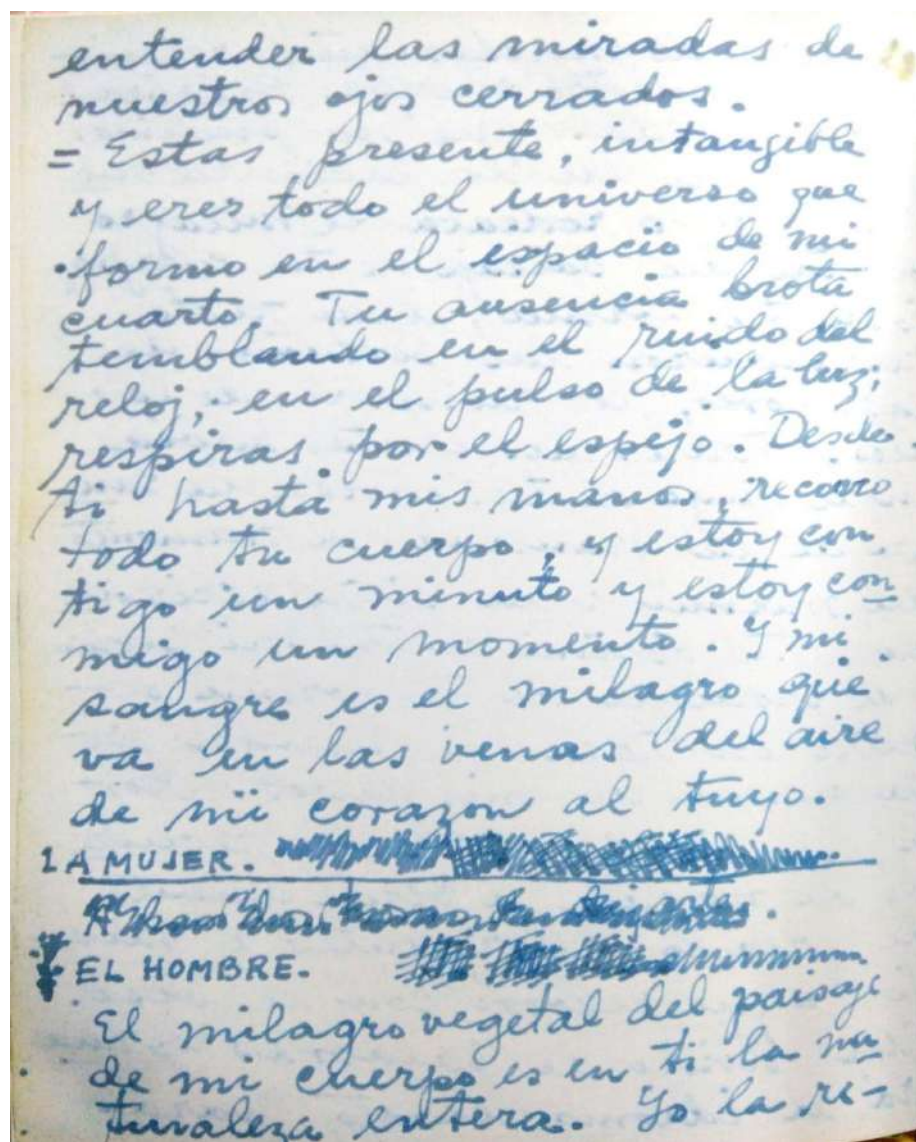 entender las miradas de
nuestros ojos cerrados.
= Estas presente, intangible
y eres todo el universo que
formo en el espacio de mi
cuarto. Tu ausencia brota
temblando en el ruido del
reloj, en el pulso de la luz;
respiras por el espejo. Desde
ti hasta mis manos, recorro
todo tu cuerpo, y estoy con
tigo un minuto y estoy con-
migo un momento. Y mi
sangre es el milagro que
va en las venas del aire
de mi corazon al tuyo.
LA MUJER.
EL HOMBRE.
El milagro vegetal del paisaje
de mi cuerpo es en ti la na-
turaleza entera. Yo la re-